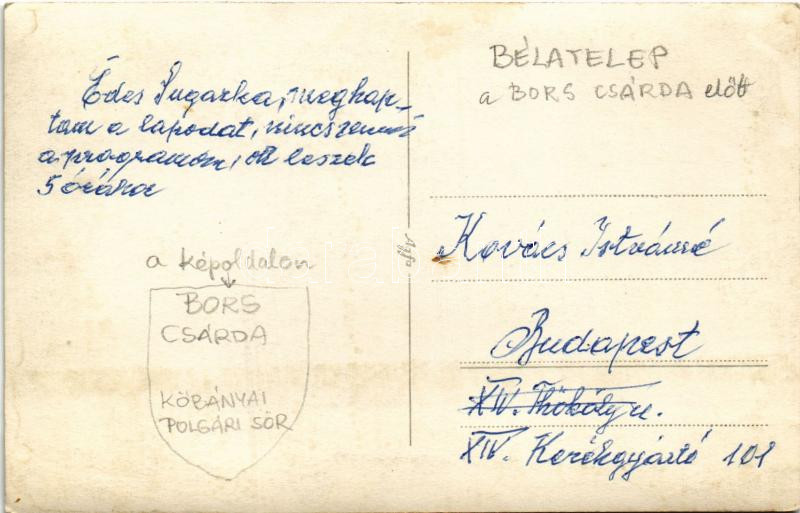 Édes Sugarka, meghap-
tam a lapodat, nincs semmi
a programom, ott leszek
5 órára
a képoldalon
BORS
CSÁRDA
KŐBÁNYAI
POLGÁRI SÖR
Agfa
BÉLATELEP
a BORS CSÁRDA előtt
Kovács Istvánné
Budapest
XIV. Thököly u.
XIV. Kerékgyártó 101